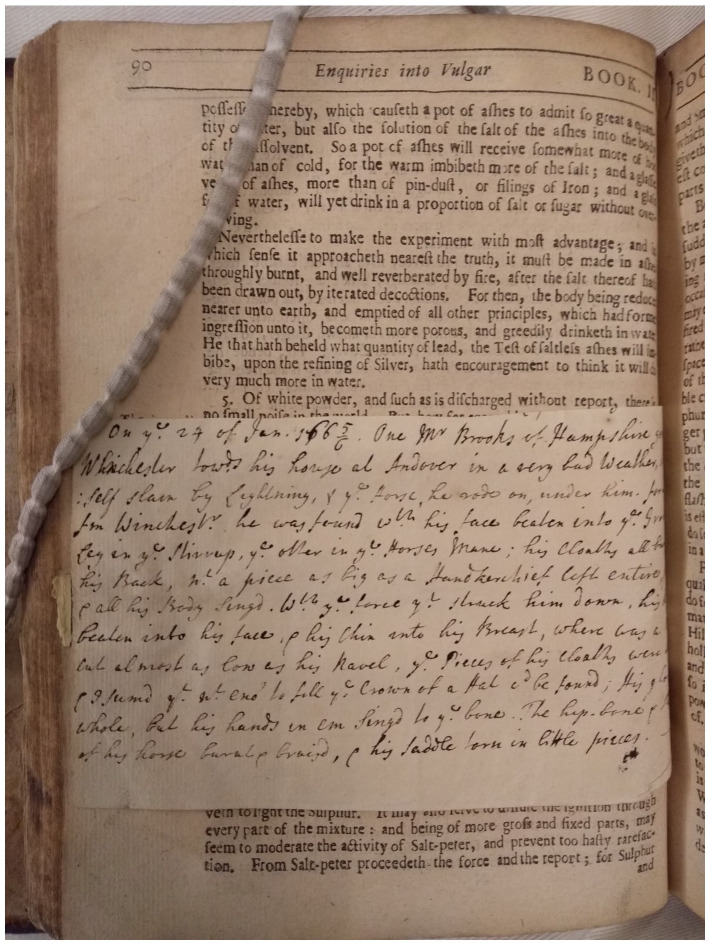 90 Enquiries into Vulgar BOOK. II
possess hereby, which causeth a pot of ashes to admit so great a quan
tity o ter, but also the solution of the salt of the ashes into the body
of th ssolvent. So a pot of ashes will receive somewhat more of hot
wat han of cold, for the warm imbibeth more of the salt; and a glasse
ve of ashes, more than of pin-dust, or filings of Iron; and a glas
f of water, will yet drink in a proportion of salt or sugar without over
wing.
Neverthelesse to make the experiment with most advantage; and in
which sense it approacheth nearest the truth, it must be made in ashe
throughly burnt, and well reverberated by fire, after the salt thereof ha
been drawn out, by iterated decoctions. For then, the body being reduc
nearer unto earth, and emptied of all other principles, which had form
ingression unto it, becometh more porous, and greedily drinketh in wate
He that hath beheld what quantity of lead, the Test of saltless ashes will im
bibe, upon the refining of Silver, hath encouragement to think it will d
very much more in water.
5. Of white powder, and such as is discharged without report, there is
no small noise in the world.
On yᵉ. 24 of Jan. 166 5/6. One Mʳ Brooks of Hampshire
Whinchester towᵈˢ his house at Andover in a very bad Weather,
:self slain by Lightning, & yᵉ Horse, he rode on, under him. for
fm Winchestʳ. he was found wᵗʰ his face beaten into yᵉ. Gr
Leg in yᵉ. Stirrup, yᵉ. other in yᵉ. Horses Mane; his Cloaths all
his Back, nᵗ. a piece as big as a Handkerchief left entire,
& all his Body Singd. Wᵗʰ yᵉ. force yᵗ. struck him down, his
beaten into his face, & his Chin into his Breast, where was a
cut almost as low as his Navel, yᵉ. Pieces of his Cloaths were
nᵗ. eno' to fill yᵉ. Crown of a Hat cᵈ be found; His
whole, but his hands in em Singd to yᵉ. bone. The hip-bone &
of his horse burnt & bruisd, & his saddle torn in little pieces.
veth to light the Sulphur. It may also serve to diffuse the ignition through
every part of the mixture: and being of more gross and fixed parts, may
seem to moderate the activity of Salt-peter, and prevent too hasty rarefac-
tion. From Salt-peter proceedeth the force and the report; for Sulphur
and